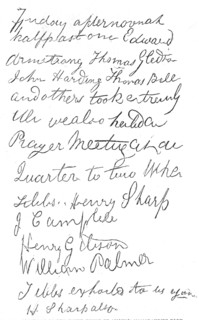 Friday afternoon at
halfpast one Edward
Armstrong Thomas Gledson
John Harding Thomas Bell
and others took extremly
Ill we also had a
Prayer Meeting at a
Quarter to two when
Tibbs Henry Sharp
J Campbell
Henry Gibson
William Palmer
Tibbs exhorted to us again
H Sharp also